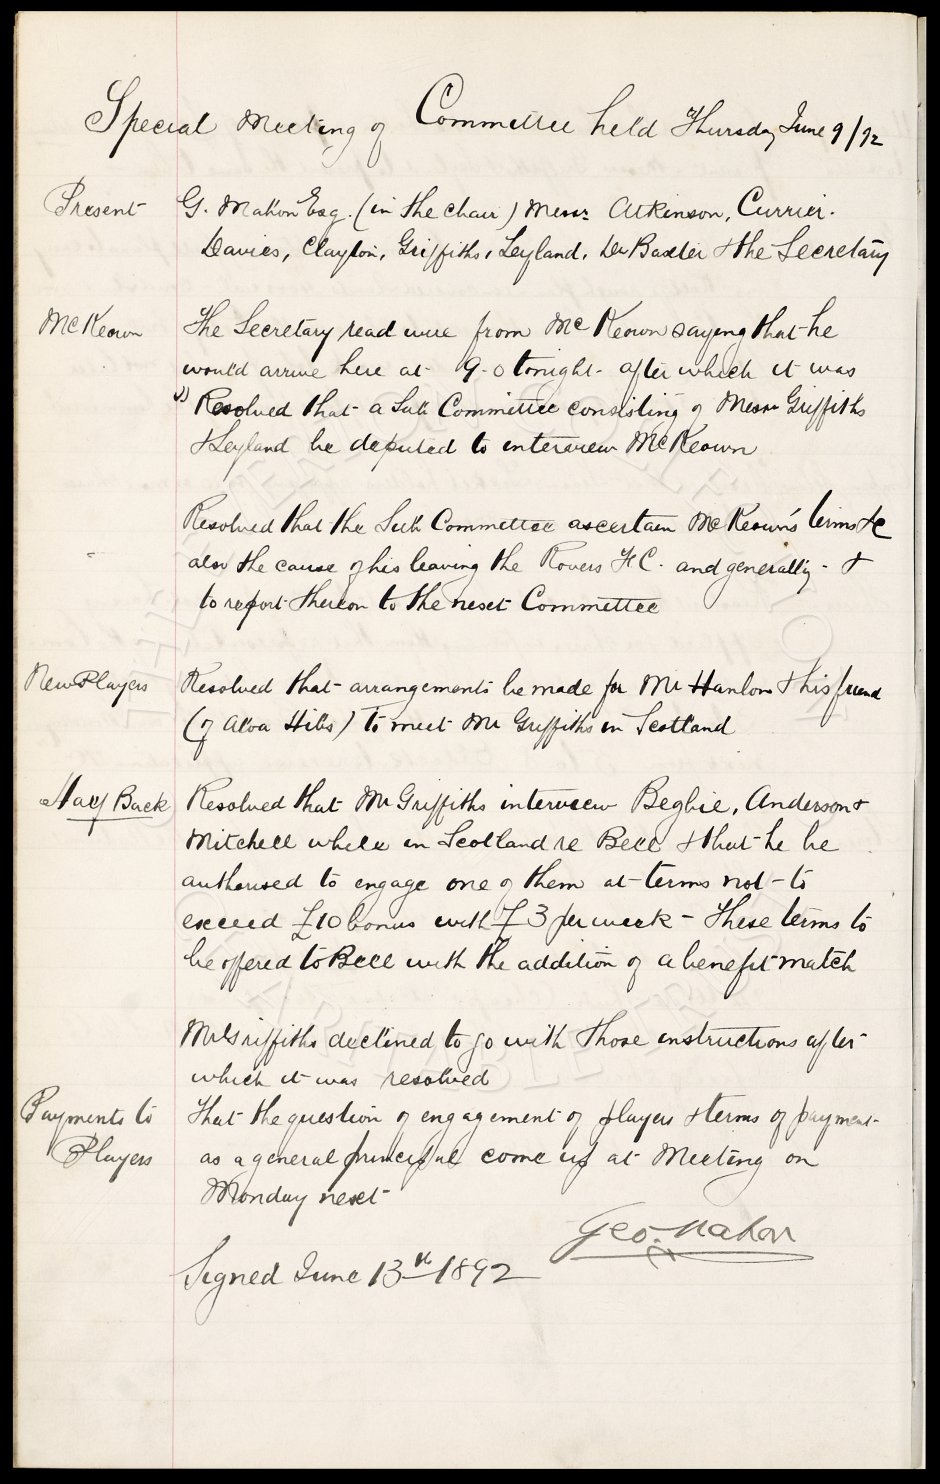 Special Meeting of Committee held Thursday June 9/92
Present
G. Mahon Esq. (in the chair) Messrs Atkinson, Currier.
Davies, Clayton, Griffiths, Leyland, Dr Baxter & the Secretary
McKeown
The Secretary read wire from McKeown saying that he
would arrive here at 9-0 tonight - after which it was
Resolved that a Sub Committee consisting of Messrs Griffiths
& Leyland be deputed to interview McKeown
Resolved that the Sub Committee ascertain McKeown's terms &c
also the cause of his leaving the Rovers F.C. and generally - &
to report thereon to the next Committee
New Players
Resolved that arrangements be made for Mr Hanlon & his friend
(of Alva Hibs) to meet Mr Griffiths in Scotland
Half Back
Resolved that Mr Griffiths interview Begbie, Anderson &
Mitchell while in Scotland re Bell & that he be
authorised to engage one of them at terms not to
exceed £10 bonus with £3 per week - These terms to
be offered to Bell with the addition of a benefit match
Mr Griffiths declined to go with those instructions after
which it was resolved
Payments to
Players
That the question of engagement of players & terms of payment
as a general principal come up at Meeting on
Monday next
Geo. Mahon
Signed June 13th 1892